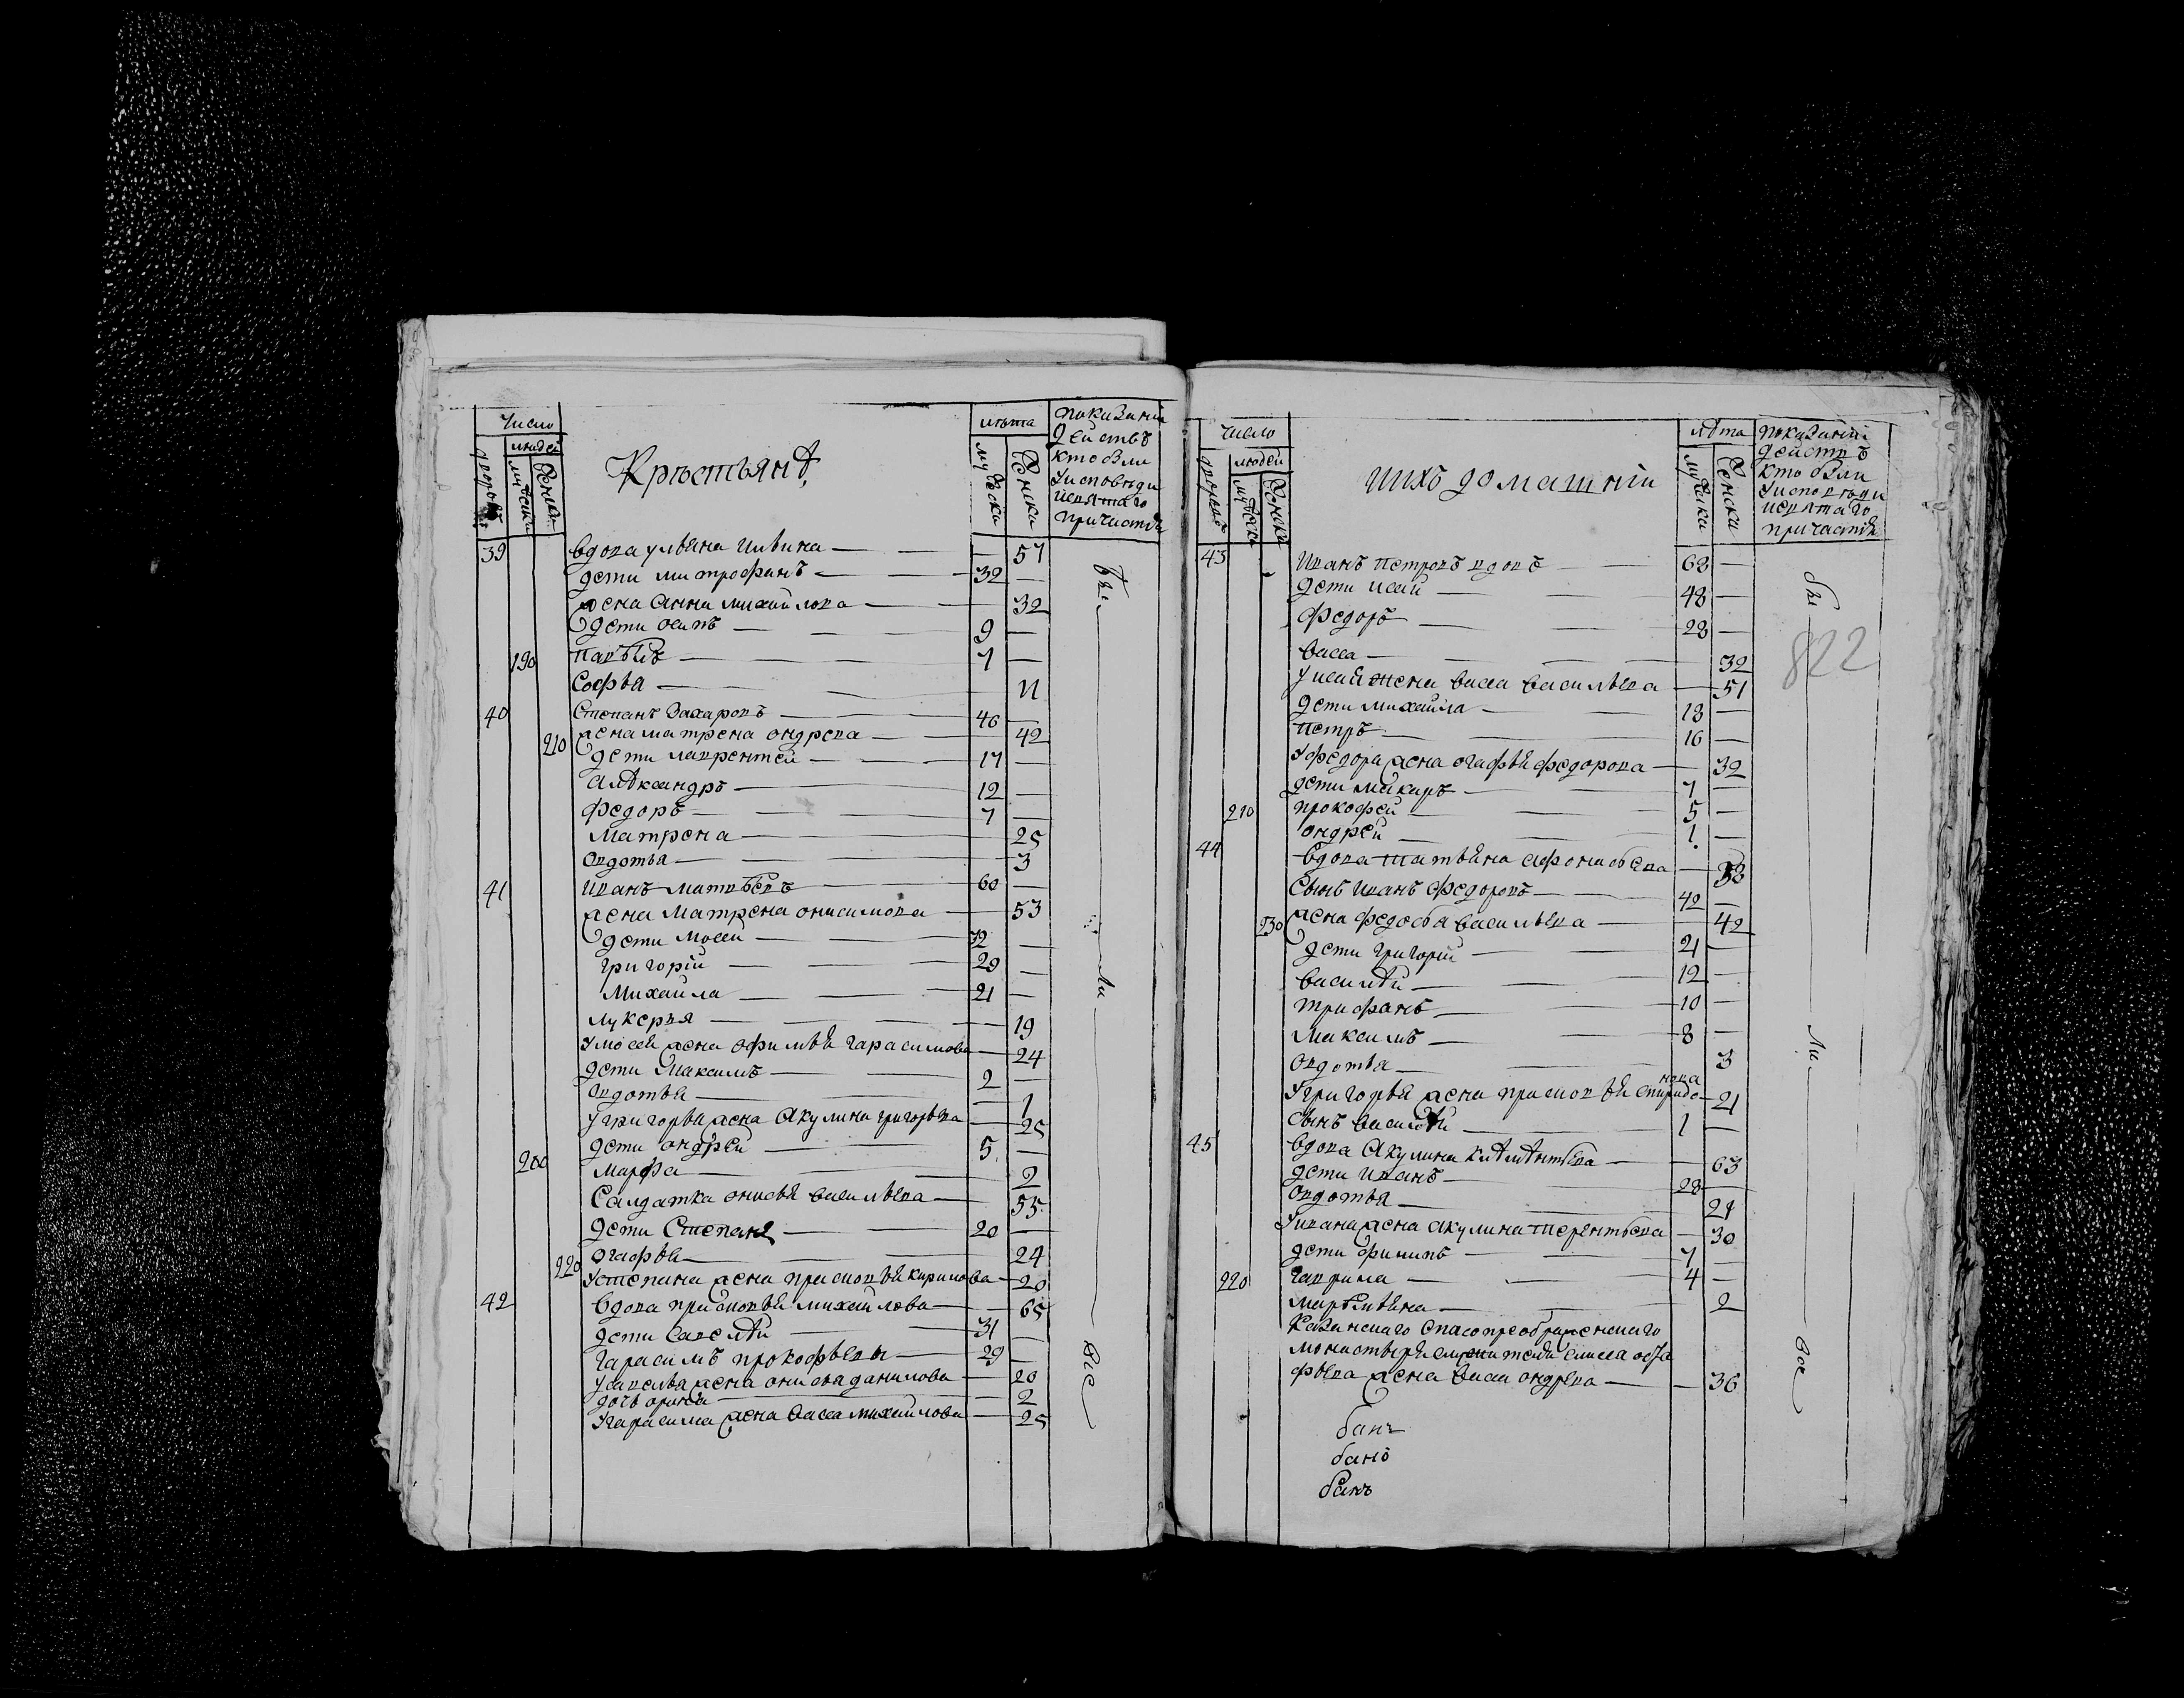 Число
людей
дворовъ
мужеска
женска
Крѣстьянѣ,
лѣта
мужеска
женска
показанiи
действъ
кто были
у исповѣди
и святаго
причастiя
39 вдова ульяна иивина — 57
дети митрофанъ — 32
жена анна михайлова — 32
дети осипъ — 9
190 павѣлъ — 7
Софья — 11
40 Степанъ Захаровъ — 46
210 жена матрена ондрева — 42
дети лаврентей — 17
алѣксандръ — 12
федоръ — 7
матрена — 25
овдотья — 3
41 иванъ матвѣевъ — 60
жена матрена онисимова — 53
дети мосей — 32
григорiй — 29
михаила — 21
лукерья — 19
у мосея жена офимья гарасимова — 24
дети максимъ — 2
овдотья — 1
у григорья жена акулина григорьева — 25
дети ондрей — 5
200 марфа — 2
Салдатка онисья васильева — 55
дети Степанъ — 20
220 огафья — 24
у степана жена прасковья кирилова — 20
42 вдова прасковья михайлова — 65
дети савелѣй — 31
гарасимъ прокофьевы — 29
у савелья жена онисья данилова — 20
дочь орина — 2
у гарасима жена васса михайлова — 25
бы ли все
Число
людей
дворовъ
мужеска
женска
ихъ домашнiи
лѣта
мужеска
женска
показанiи
действъ
кто были
у исповѣди
и святаго
причастiя
43 иванъ петровъ вдовъ — 68
дети исай — 48
федоръ — 28
васса — 32
у исаи жена васса васильева — 51
дети михайла — 18
петръ — 16
у федора жена огафья федорова — 32
дети макаръ — 7
210 прокофей — 5
ондрей — 1
44 вдова татьяна афонасьева —
Сынъ иванъ федоровъ — 42
230 жена федосья васильева — 42
дети григорiй — 21
василѣй — 12
трифанъ — 10
максимъ — 8
овдотья — 3
у григорья жена прасковья спиридонова — 21
сынъ василѣй — 1
45 вдова акулина клѣмѣнтьева — 63
дети иванъ — 28
овдотья — 21
у ивана жена акулина терентьева — 30
дети филипъ — 7
220 гаврила — 4
марѣмьяна — 2
Казанскаго Спасопреображенскаго
монастыря служителя елисея
жена васса ондрева — 36
бы ли все
822
банъ
бано
банъ